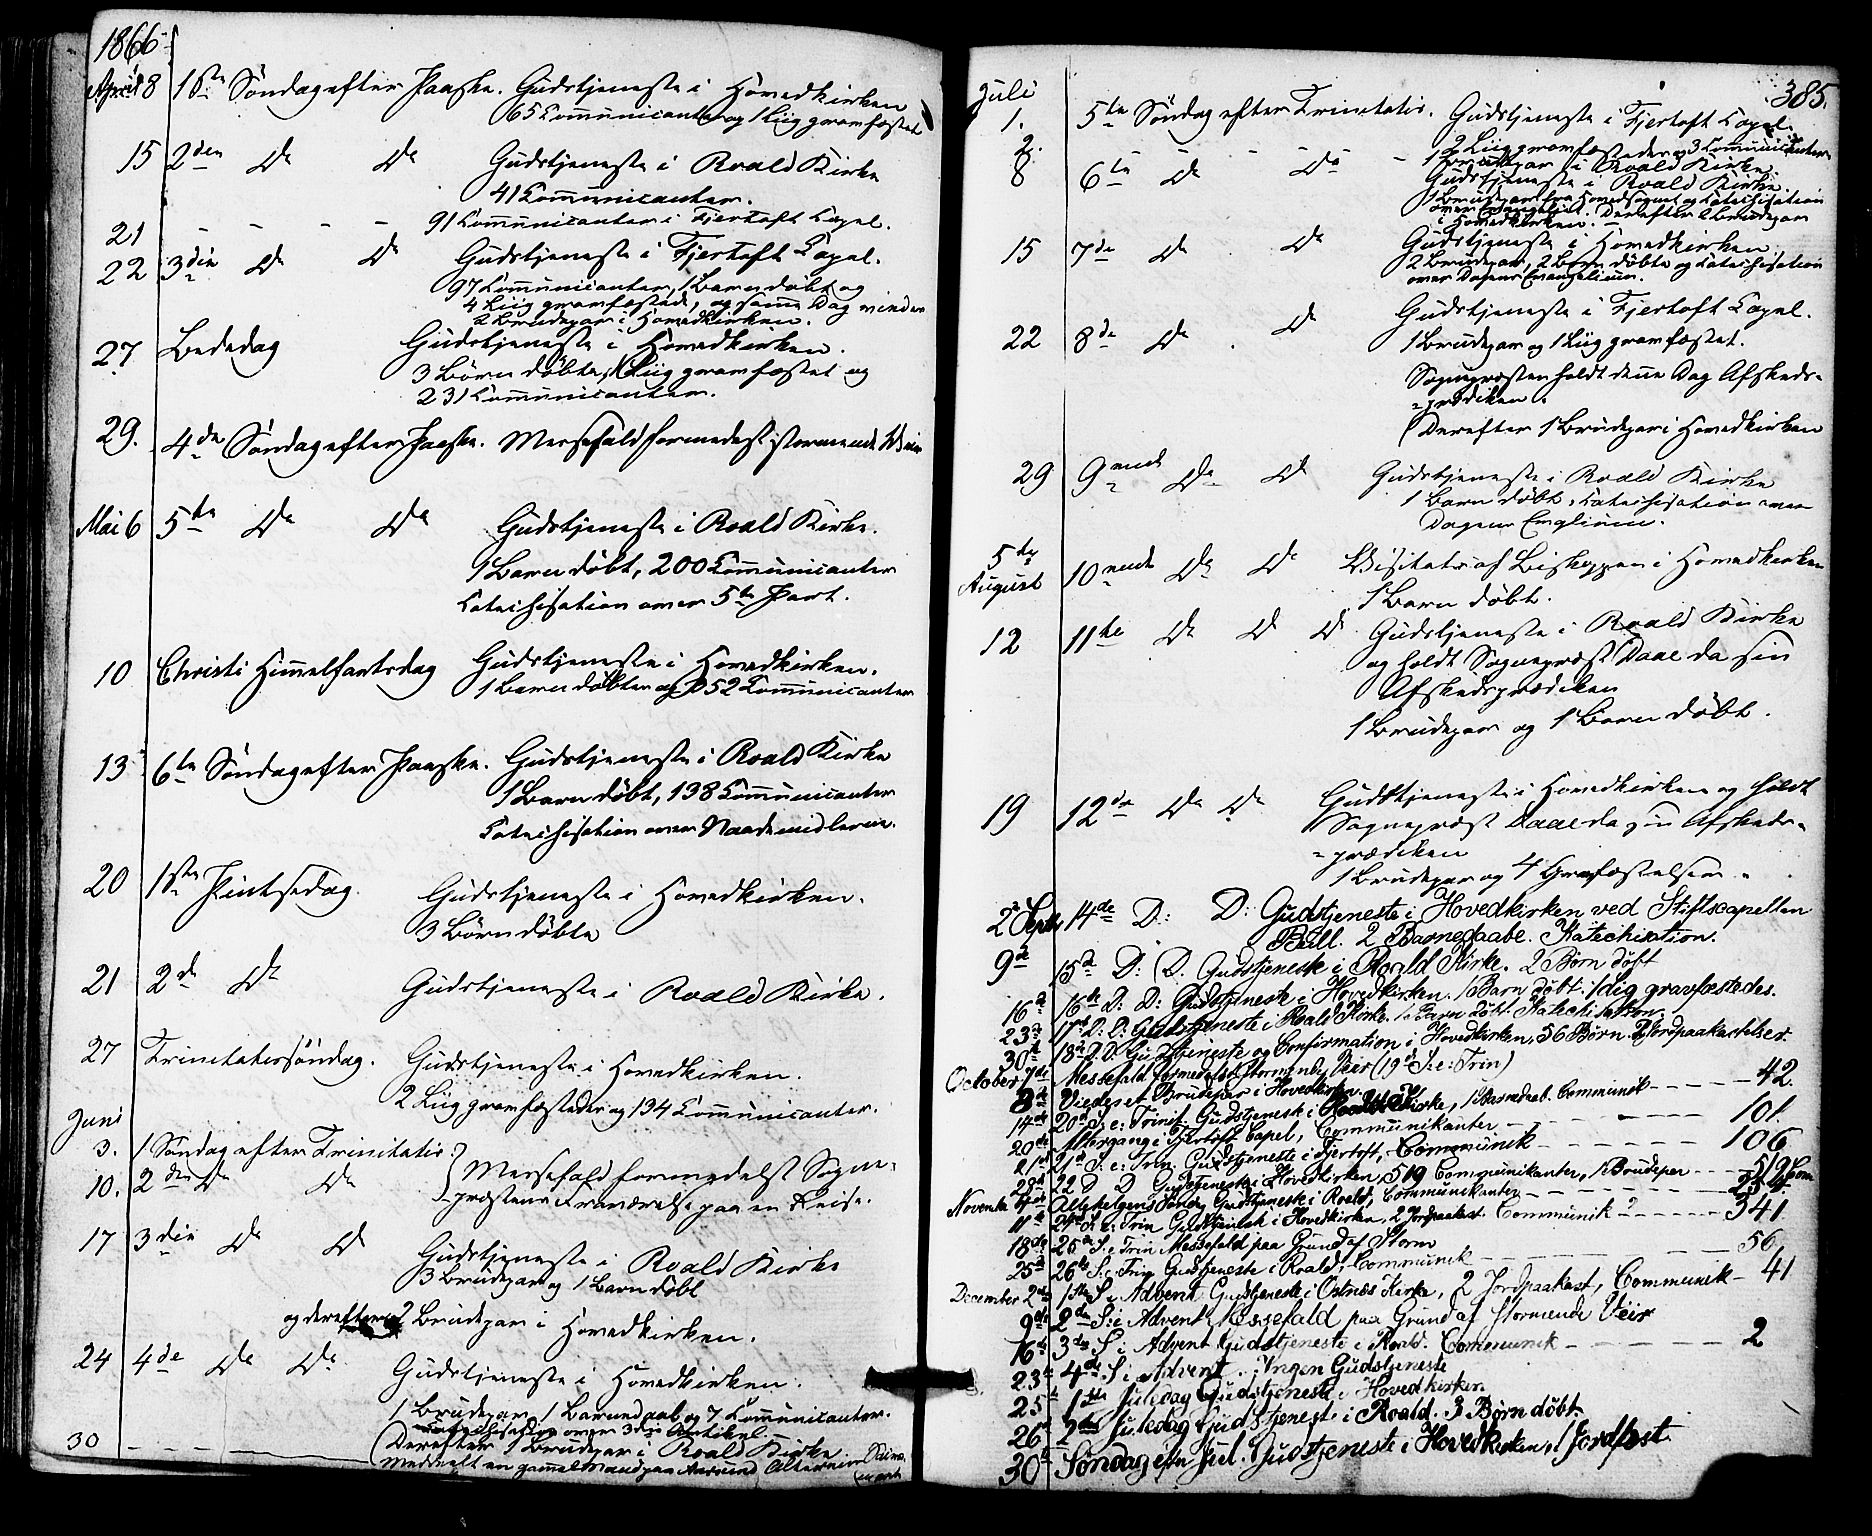 1866
April 8 1ste Søndag efter Paaske. Gudstjeneste i Hovedkirken
65 Communicanter og 1 Liig gravfæstet
15 2den Do Do Gudstjeneste i Roald Kirke
41 Communicanter.
21 - - - - 91 Communicanter i Fjertoft Capel.
22 3die Do Do Gudstjeneste i Fjertoft Capel.
97 Communicanter, 1 Barn døbt og
4 Liig gravfæstede, og samme Dag viedes
2 Brudepar i Hovedkirken.
27 Bededag Gudstjeneste i Hovedkirken.
3 Børn døbte, 1 Liig gravfæstet og
231 Communicanter.
29. 4de Søndag efter Paaske. Messefald formedelst stormende Veir
Mai 6 5te Do Do Gudstjeneste i Roald Kirke.
1 Barn døbt, 200 Communicanter
Catechisation over 5te Part.
10 Christi Himmelfartsdag Gudstjeneste i Hovedkirken.
1 Barn døbt og 252 Communicanter
13 6te Søndag efter Paaske. Gudstjeneste i Roald Kirke
1 Barn døbt, 138 Communicanter
Catechisation over Naademidlerne.
20 1ste Pintsedag. Gudstjeneste i Hovedkirken.
3 Børn døbte
21 2de Do Gudstjeneste i Roald Kirke.
27 Trinitatissøndag. Gudstjeneste i Hovedkirken.
2 Liig gravfæstede og 134 Communicanter.
Juni
3. 1 Søndag efter Trinitatis.
10. 2den Do Do Messefald formedelst Sogne-
præstens Fraværelse paa en Reise.
17 3die Do Do Gudstjeneste i Roald Kirke
3 Brudepar og 1 Barn døbt
og derefter 2 Brudepar i Hovedkirken.
24 4de Do Do Gudstjeneste i Hovedkirken.
1 Brudepar, 1 Barnedaab og 7 Communicanter.
Catechisation over 3die Artikel.
30 - - - - Derefter 1 Brudepar i Roald Kirke.
meddeelt en gammel Mand paa
385.
Juli
1. 5te Søndag efter Trinitatis. Gudstjeneste i Fjertoft Capel.
2 Liig gravfæstede og 3 Communicanter
2. - - - - 1 Brudepar i Roald Kirke.
8 6te Do Do Gudstjeneste i Roald Kirke.
1 Brudepar fra Hovedsognet og Catechisation
over Evangeliet. Derefter 2 Brudepar
i Hovedkirken.
15 7de Do Do Gudstjeneste i Hovedkirken
2 Brudepar, 2 Børn døbte og Catechisation
over Dagens Evangelium.
22 8de Do Do Gudstjeneste i Fjertoft Capel.
1 Brudepar og 1 Liig gravfæstet.
Sognepræsten holdt denne Dag Afskeds-
-prædiken.
Derefter 1 Brudepar i Hovedkirken
29 9nde Do Do Gudstjeneste i Roald Kirke
1 Barn døbt, Catechisation over
Dagens Evglium.
5te
August 10ende Do Do Visitats af Biskoppen i Hovedkirken
1 Barn døbt.
12 11te Do Do Do Gudstjeneste i Roald Kirke
og holdt Sognepræst Daae da sin
Afskedsprædiken
1 Brudepar og 1 Barn døbt.
19 12te Do Do Gudstjeneste i Hovedkirken og holdt
Sognepræst Daae da sin Afskeds-
-prædiken
1 Brudepar og 4 Gravfæstelser.
2d Septbr 14de D: D: Gudstjeneste i Hovedkirken ved Stiftscapellan
Bull. 2 Barnedaabe. Katechisation.
9de 15de D: D. Gudstjeneste i Roald Kirke. 2 Børn døbt
16de 16de D: D: Gudstjeneste i Hovedkirken. 1 Barn døbt. 1 Liig gravfæstedes.
23de 17de D: D: Gudstjeneste i Roald Kirke. 1 Barn døbt. Katechisation.
30te 18de D. D. Gudstjeneste og Confirmation i Hovedkirken, 56 Børn. 2 Jordpaakastelser.
October 7de Messefald formedelst stormende Veir (19de S: e: Trin)
8de Viedes et Brudepar i Hovedkirken
14de 20de S: e: Trinit. Gudstjeneste i Roald Kirke, 1 Barnedaab. Communik - - - - 42.
20de Altergang i Fjertoft Capel, Communikanter - - - - 101.
21de 21de S: e: Trin. Gudstjeneste i Fjertoft, Communik - - - - 106
28de 22 D D Gudstjeneste i Hovedkirken, 519 Communikanter, 1 Brudepar - - 519 Com
November 4de Allehelgens Søndag Gudstjeneste i Roald, Communikanter - - - -
11te 24de S. e: Trin Gudstjeneste i Hovedkirken, 2 Jordpaakast. Communik - - - - 341
18de 25de S: e Trin Messefald paa Grund af Storm
25de 26de S: e: Trin Gudstjeneste i Roald, Communik - - - - 56
December 2de 1ste S: i Advent Gudstjeneste i Ostnes Kirke, 2 Jordpaakast, Communik - 41
9de 2de S: i Advent Messefald paa Grund af stormende Veir
16de 3de S i Advent Gudstjeneste i Roald. Communik - - - - 2
23de 4de S i Advent. Ingen Gudstjeneste
25de 1ste Juledag Gudstjeneste i Hovedkirken.
26de 2den Juledag Gudstjeneste i Roald. 3 Børn døbt.
30te Søndag efter Jul. Gudstjeneste i Hovedkirken, 1 Jordfæst